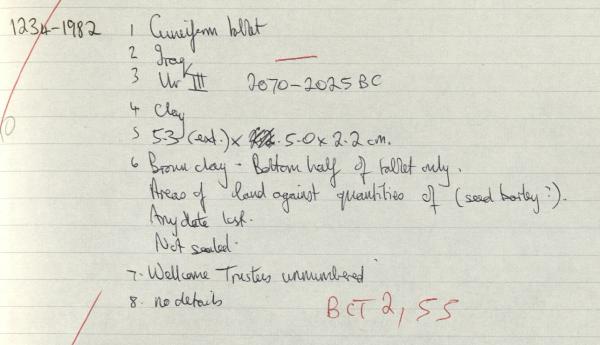 1234-1982 1 Cuneiform tablet
2 Iraq
3 Ur III 2070-2025 BC
4 Clay
5 5.3 (ext.) x 5.0 x 2.2 cm.
6 Brown clay - Bottom half of tablet only.
Areas of land against quantities of (seed barley?).
Any date lost.
Not sealed.
7. Wellcome Trustees unnumbered
8. no details
BCT 2, 55